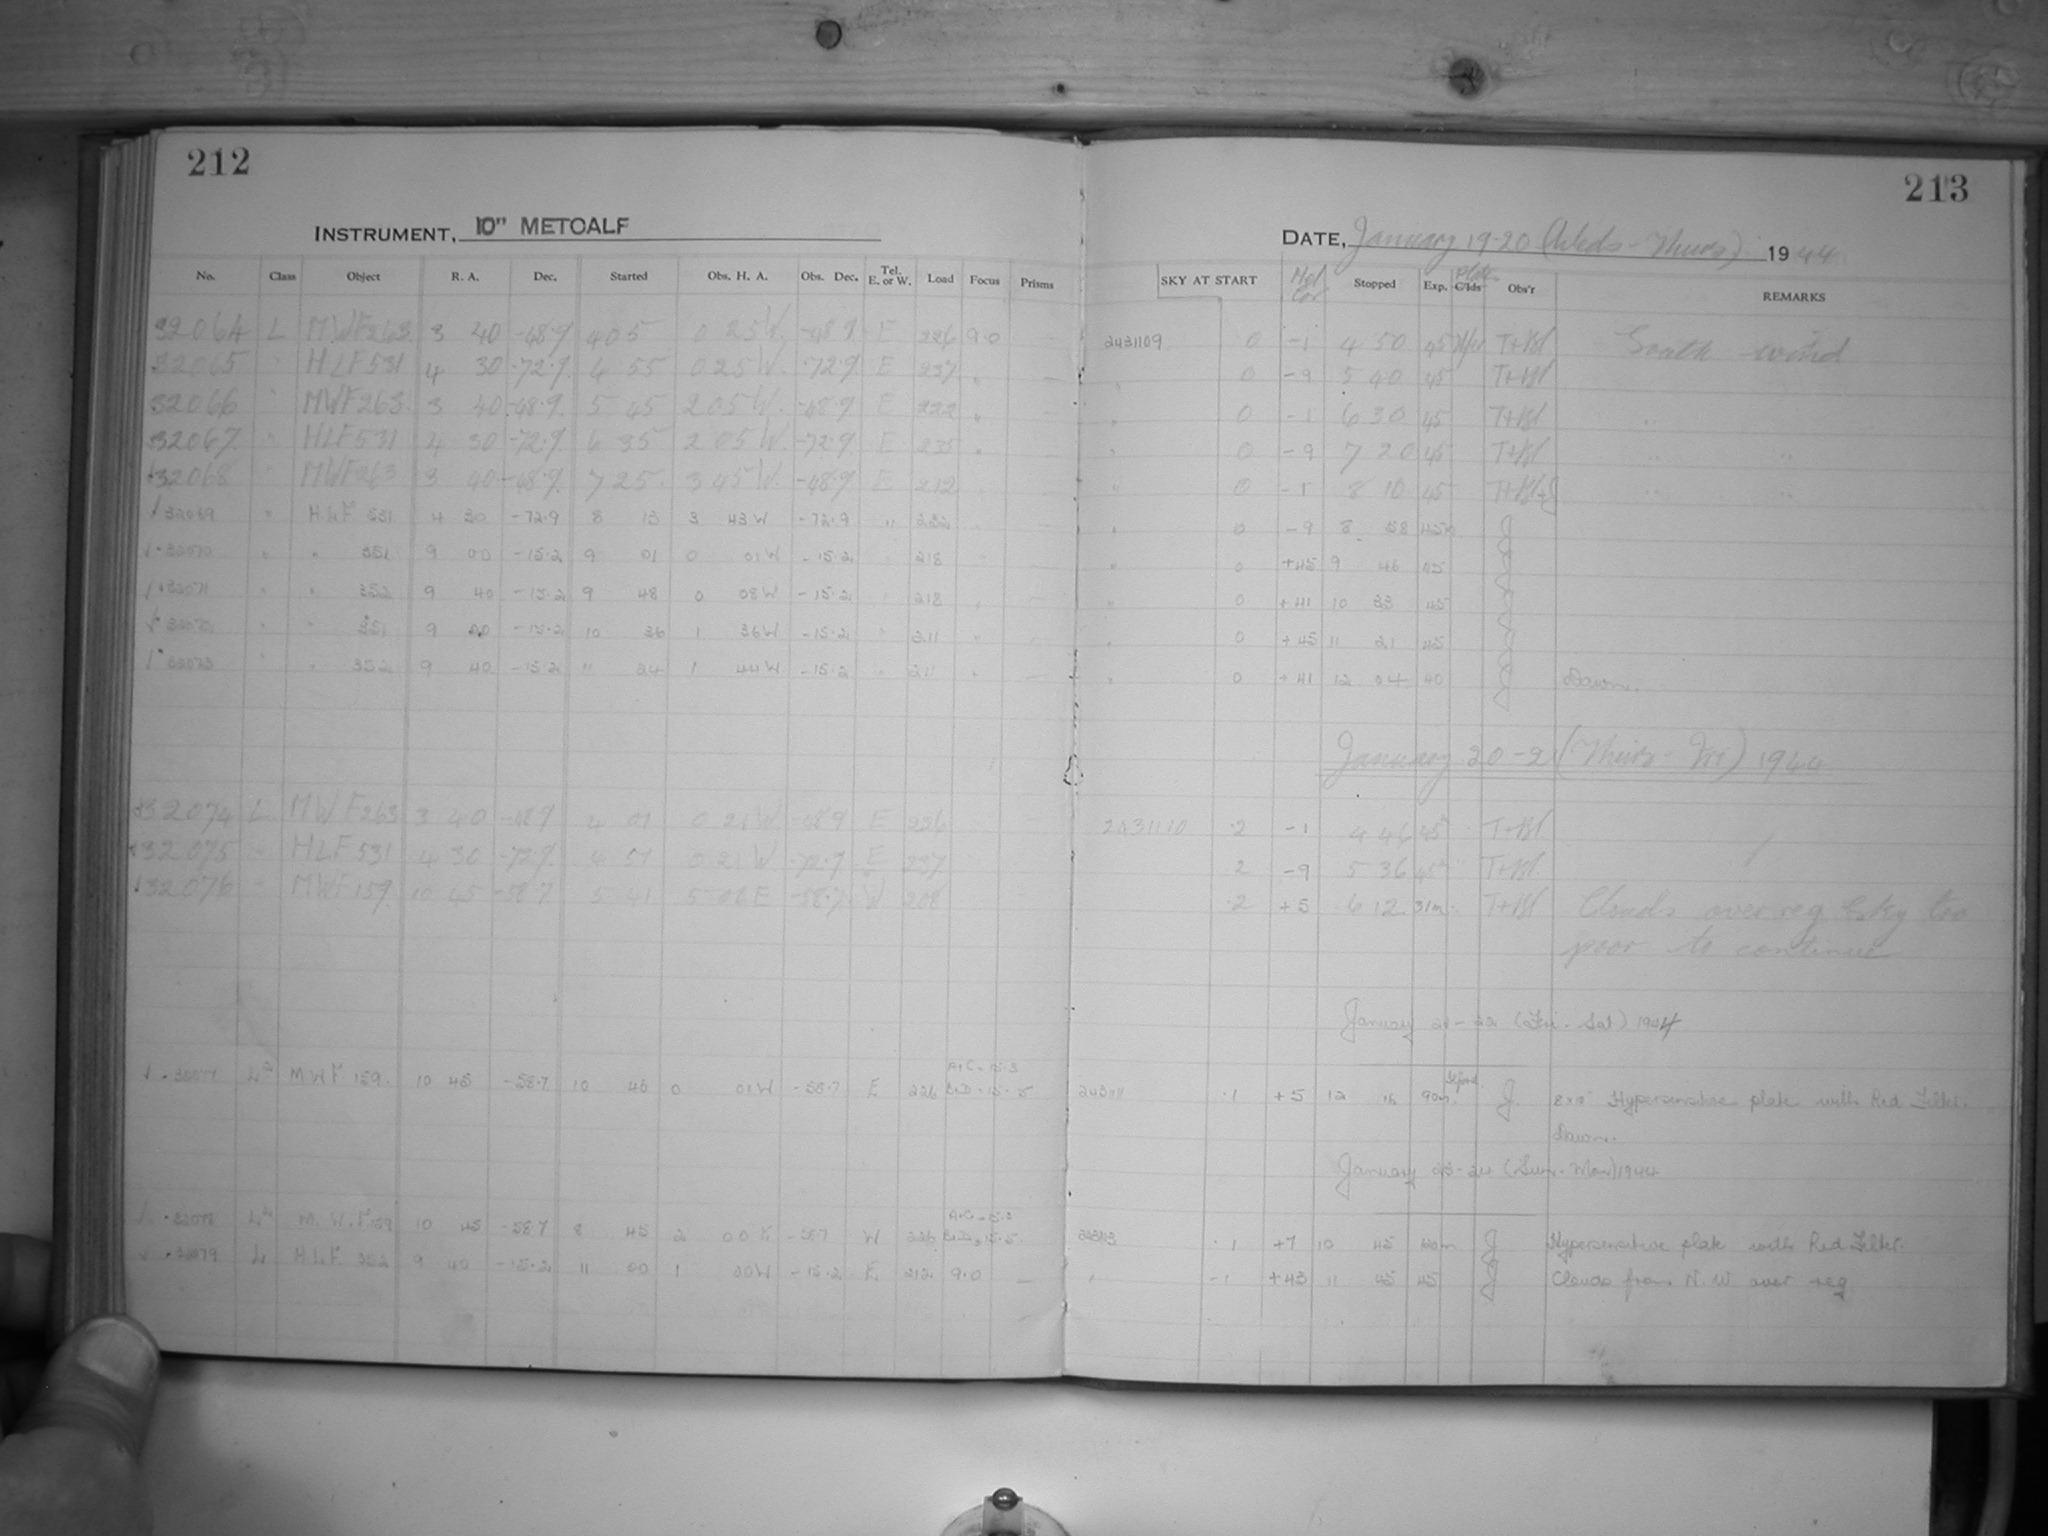 212
INSTRUMENT, 10" METCALF
No. Class Object R. A. Dec. Started Obs. H. A. Obs. Dec. Tel. E. or W. Load Focus Prisms
32064 L MWF263 3 40 -48.9 4 05 0 25W -48.9 E 226 9.0
32065 " HLF531 4 30 -72.9 4 55 0 25W -72.9 E 237 "
32066 " MWF263 3 40 -48.9 5 45 2 05W -48.9 E 222 "
32067 " HLF531 4 30 -72.9 6 35 2 05W -72.9 E 235 "
32068 " MWF263 3 40 -48.9 7 25 3 45W -48.9 E 212
32069 " HLF 531 4 30 -72.9 8 13 3 43W -72.9 " 232
32070 " " 351 9 00 -15.2 9 01 0 01W -15.2 " 218
32071 " " 352 9 40 -15.2 9 48 0 08W -15.2 " 218
" " 351 9 00 -15.2 10 36 1 36W -15.2 " 211
32073 " " 352 9 40 -15.2 11 24 1 44W -15.2 " 211
32074 L MWF263 3 40 -48.9 4 01 0 21W -48.9 E 226
32075 " HLF531 4 30 -72.9 4 51 0 21W -72.9 E 237
32076 " MWF159 10 45 -58.7 5 41 -58.7 W 208
A+C - 15.3
32077 MWF 159 10 45 -58.7 10 46 0 01W -58.7 E 226 B+D - 15.5
A+C - 15.3
M.W.F.159 10 45 -58.7 8 45 2 00E -58.7 W 226 B+D - 15.5
32079 L HLF 352 9 40 -15.2 11 00 1 20W -15.2 E 212 9.0
213
DATE, January 19-20 (Weds-Thurs) 1944
SKY AT START Stopped Exp. Plate C'lds Obs'r REMARKS
2431109 0 -1 4 50 45 T+Bl South wind
" 0 -9 5 40 45 T+Bl
" 0 -1 6 30 45 T+Bl "
" 0 -9 7 20 45 T+Bl " "
" 0 -1 8 10 45 T+Bl+J " "
" 0 -9 8 58 45 J
" 0 +45 9 46 45 J
" 0 +41 10 33 45 J
" 0 +45 11 21 45 J
" 0 +41 12 04 40 J Dawn.
January 20-21 (Thurs-Fri) 1944
2431110 .2 -1 4 46 45 T+Bl
2 -9 5 36 45 T+Bl
.2 +5 6 12 31m T+Bl Clouds over reg & sky too
poor to continue
January 21-22 (Fri.-Sat) 1944
243111 .1 +5 12 16 90m J. 8x10 Hypersensitive plate with Red Filter.
Dawn.
January 23-24 (Sun.-Mon) 1944
.1 +7 10 45 120m J Hypersensitive plate with Red Filter.
" -1 +43 11 45 45 J Clouds from N.W over reg